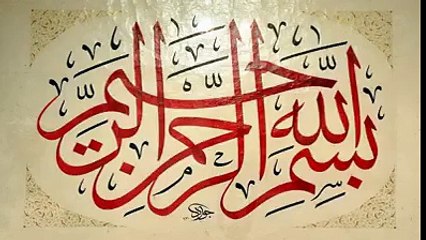 بِسْمِ اللهِ الرَّحْمنِ الرَّحِيمِ
جواد